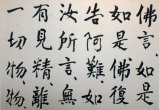 佛言如是
如是佛復
告阿難如
汝所言無
有見精離
一切物物